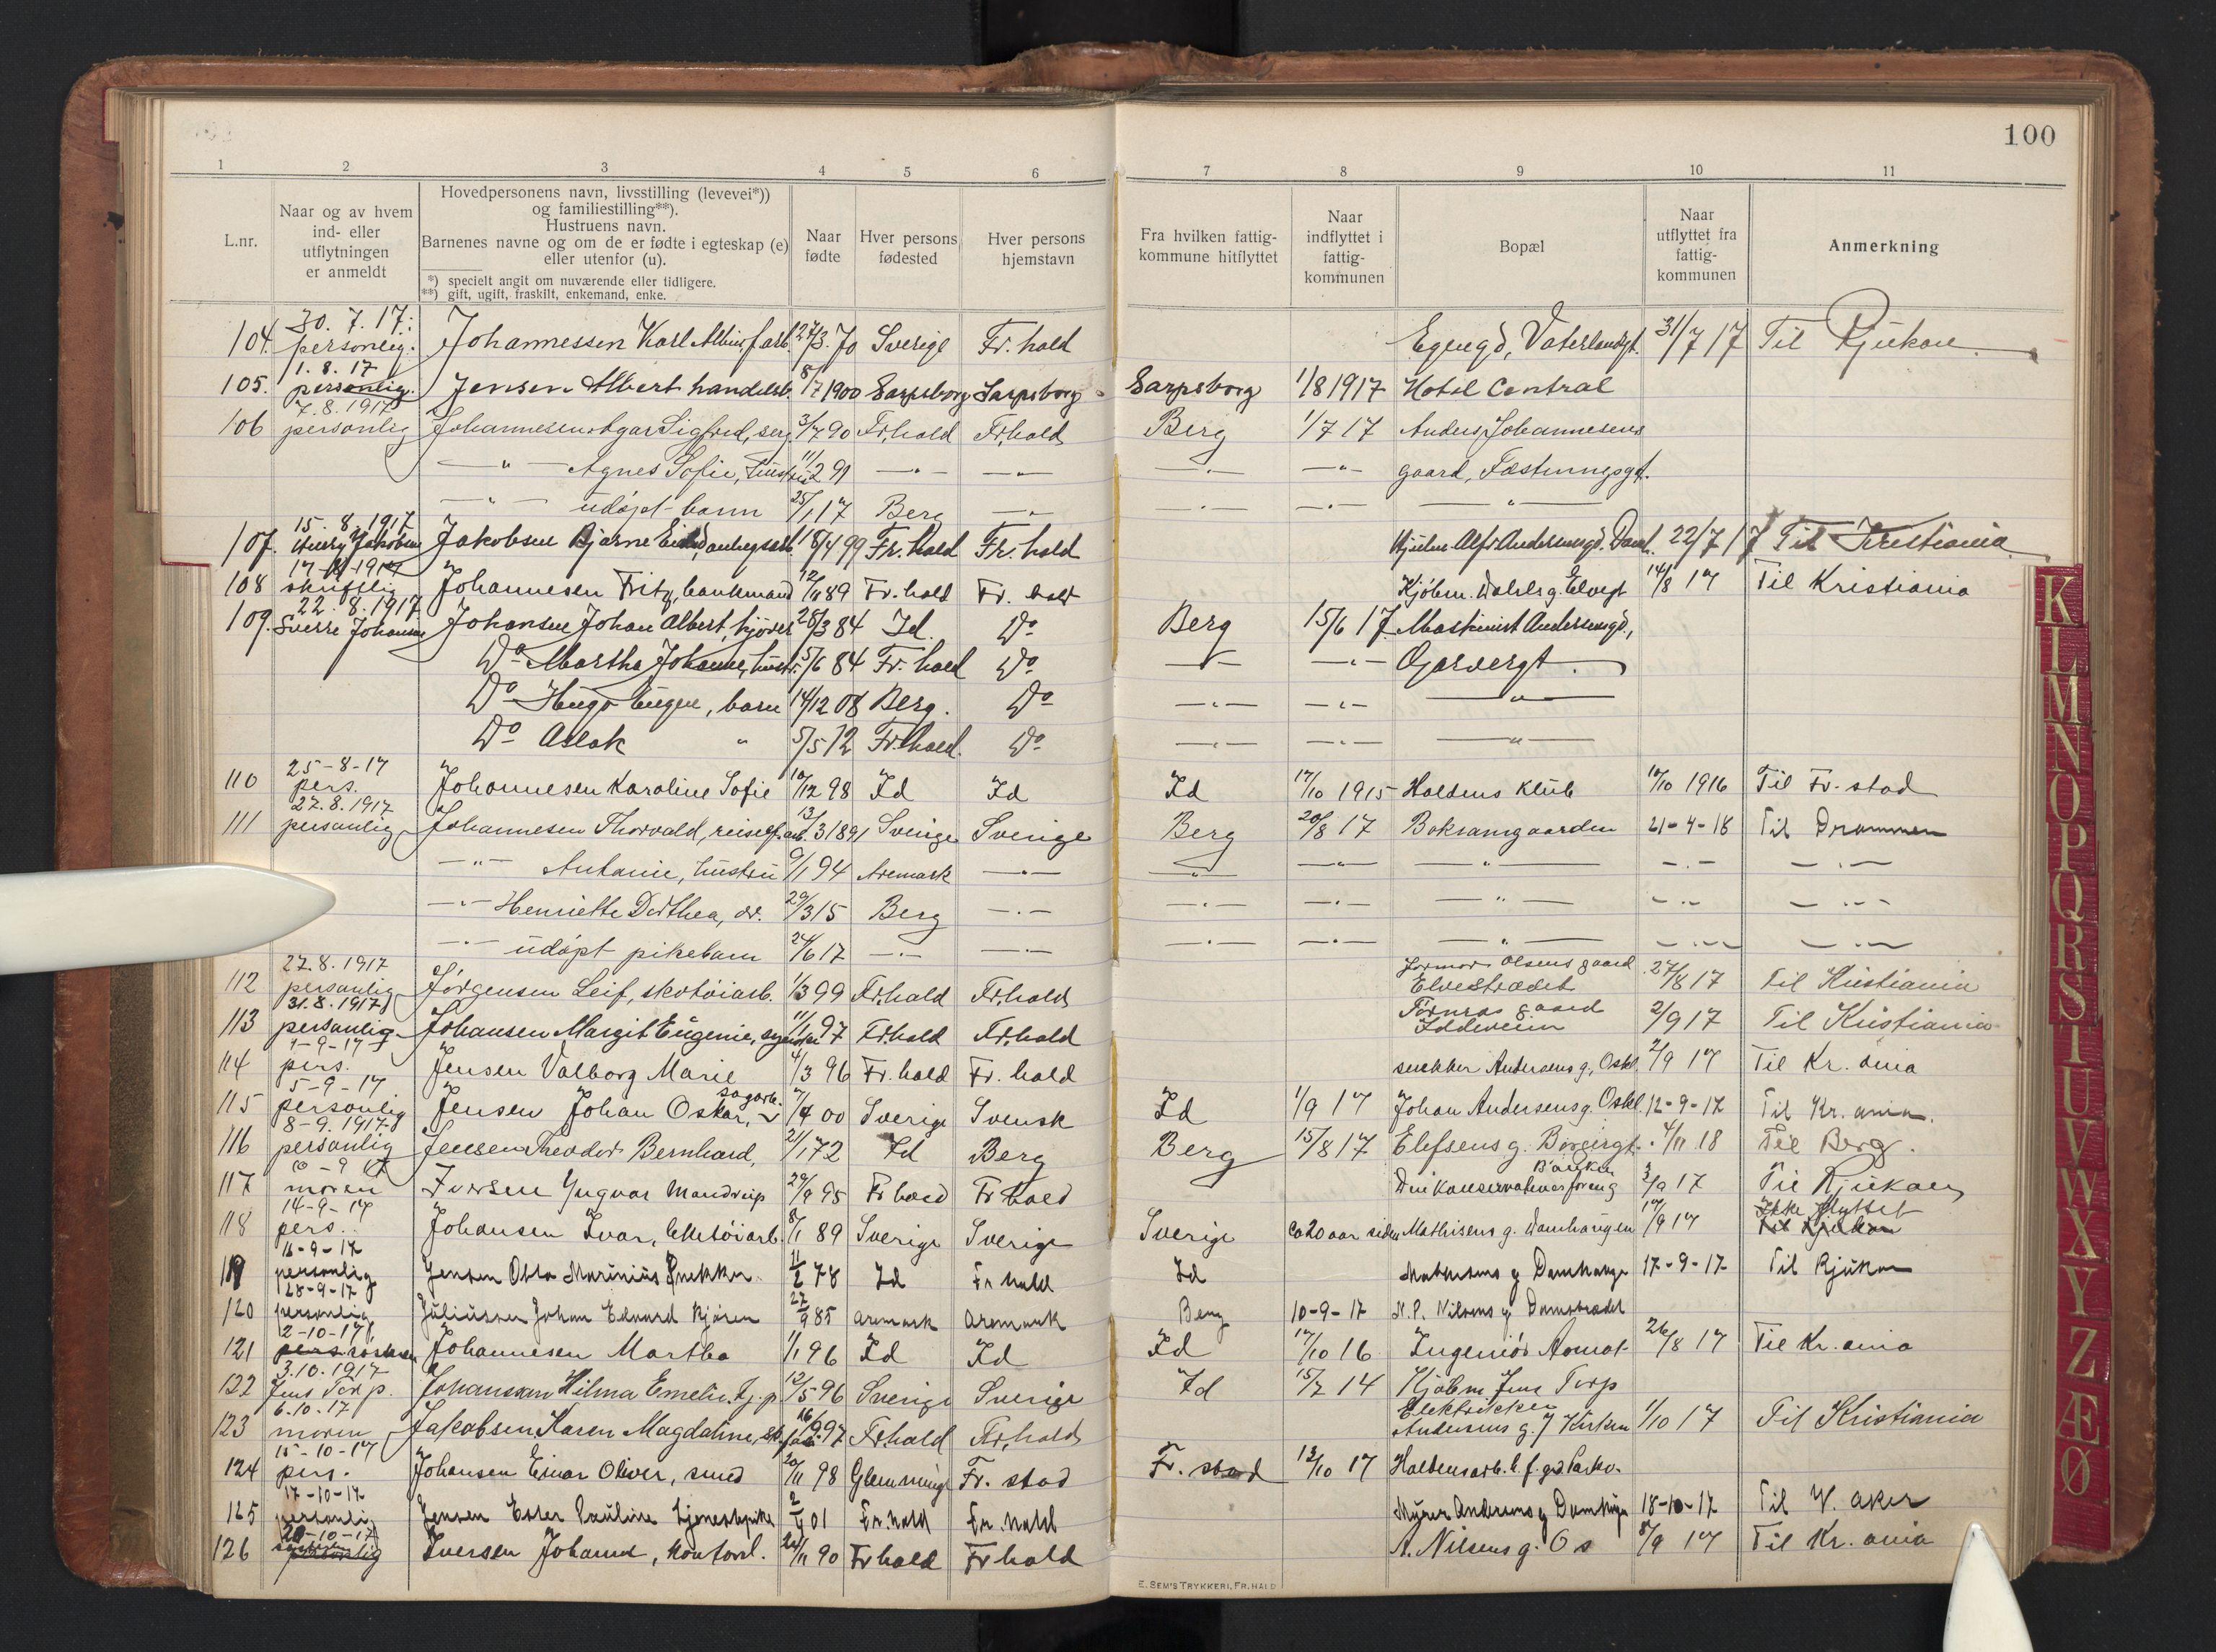 100
1 2 3 4 5 6 7 8 9 10 11
L.nr.
Naar og av hvem
ind- eller
utflytningen
er anmeldt
Hovedpersonens navn, livsstilling (levevei*))
og familiestilling**).
Hustruens navn.
Barnenes navne og om de er fødte i egteskap (e)
eller utenfor (u).
*) specielt angit om nuværende eller tidligere.
**) gift, ugift, fraskilt, enkemand, enke.
Naar
fødte
Hver persons
fødested
Hver persons
hjemstavn
Fra hvilken fattig-
kommune hitflyttet
Naar
indflyttet i
fattig-
kommunen
Bopæl
Naar
utflyttet fra
fattig-
kommunen
Anmerkning
30. 7. 17.
104. personlig. Johannessen Karl Albin, f.arb. 27/3. 70 Sverige Fr. hald 31/7 17 Til Rjukan
1. 8. 17
105. personlig. Jensen Albert handelsb. 8/7 1900 Sarpsborg Sarpsborg Sarpsborg 1/8 1917 Hotel Central
7. 8. 1917
106 personlig Johannesen Agar Sigfred, 3/7 90 Fr.hald Fr.hald Berg 1/7 17 Anders Johannesens
— " — Agnes Sofie, hustru 11/2 91 — " — — " — — " — — " — gaard, Fæstningsgt.
— " — udøpt barn 25/1 17 Berg — " — — " — — " — — " —
15. 8. 1917
107. Jakobsen Bjarne 18/4 99 Fr. hald Fr. hald 22/7 17 Til Kristiania
108 skriftlig Johannesen Fritz, bankmand 12/11 89 Fr. hald Fr. hald 14/8 17 Til Kristiania
22. 8. 1917
109. Sverre Johansen Johansen Johan Albert, kjører 28/3 84 Id. Do Berg 15/6 17. Maskinist Andersensgd.,
Do Martha Johanne, hustr. 5/6 84 Fr. hald Do — " — — " —
Do Hugo Eugen, barn 14/12 08 Berg. Do — " — — " — — " —
Do Aslak " 5/5 12 Fr.hald. Do — " — — " — — " —
25-8-17
110 pers. Johannesen Karoline Sofie 10/12 98 Id Id Id 17/10 1915 Haldens Klub 17/10 1916 Til Fr. stad
27. 8. 1917
111 personlig Johannesen Thorvald, 13/3 1891 Sverige Sverige Berg 20/8 17 21-4-18 Til Drammen
— " — Antonie, hustru 9/1 94 Aremark — " — — " — — " — — " — — " — — " —
— " — Henriette Dorthea, 29/3 15 Berg — " — — " — — " — — " — — " — — " —
— " — udøpt pikebarn 24/6 17 — " — — " — — " — — " — — " — — " — — " —
27. 8. 1917
112 personlig Jørgensen Leif, skotøiarb. 1/3 99 Fr.hald Fr.hald Olsens gaard
Elvestrædet 27/8 17 Til Kristiania
31. 8. 1917
113 personlig Johansen Margit Eugenie, 11/1 97 Fr.hald Fr.hald gaard
2/9 17 Til Kristiania
4-9-17
114 pers. Jensen Valborg Marie 4/3 96 Fr. hald Fr. hald snekker Andersens g., Oskl. 2/9 17 Til Kr. ania
5-9-17
115 personlig Jensen Johan Oskar, sagarb. 7/4 00 Sverige Svensk Id 1/9 17 Johan Andersens g. Oskl. 12-9-17 Til Kr. ania.
8-9. 1917
116 personlig Jensen Theodor Bernhard, 21/1 72 Id Berg Berg 15/8 17 Elefsens g. Borgergt. 4/11 18 Til Berg.
10-9 17
117 moren Iversen Yngvar Mandrup 29/9 95 Fr hald Fr hald Den konservativeforening Banken 3/9 17 Til Rjukan
14-9-17
118 pers. Johansen Ivar, skotøiarb. 8/1 89 Sverige Sverige Sverige ca 20 aar siden Mathisens g. Damhaugen 17/9 17 Ikke flyttet
Til Rjukan
16-9-17
119 personlig Jensen Otto Marinius Snekker 11/2 78 Id Fr hald Id Mathisens g Damhaugen 17-9-17 Til Rjukan
28-9-17
120 personlig Juliussen Johan Edvard Kjøren 27/9 85 Aremark Aremark Berg 10-9-17 N. P. Nilsens g Damstrædet
2-10-17
121 Johannesen Martha 1/1 96 Id Id Id 17/10 16 Ingeniør 26/8 17 Til Kr. ania
3.10. 1917
122 Jens Torp. Johansson Hilma Emelie, tj. p. 12/5 96 Sverige Sverige Id 15/7 14 Kjøbm Jens Torp
6. 10. 17
123 moren Jakobsen Karen Magdaline, 16/9 97 Fr.hald Fr.hald Elektriker
Andersens g. v/ Kirken 1/10 17 Til Kristiania
15-10-17
124 pers. Johansen Einar Oliver, smed 20/11 98 Glemminge Fr. stad Fr. stad 12/10 17
17-10-17
125 personlig Jensen Ester Pauline tjenestepike 01 Fr. hald Fr. hald 18-10-17 Til V. Aker
20-10-17
126 personlig Iversen Johanne, kontord. 24/11 90 Fr hald Fr hald A. Nilsens g. Os 8/9 17 Til Kr. ania
E. SEM'S TRYKKERI, FR.HALD
K
L
M
N
O
P
Q
R
S
T
U
V
W
X
Y
Z
Æ
Ø